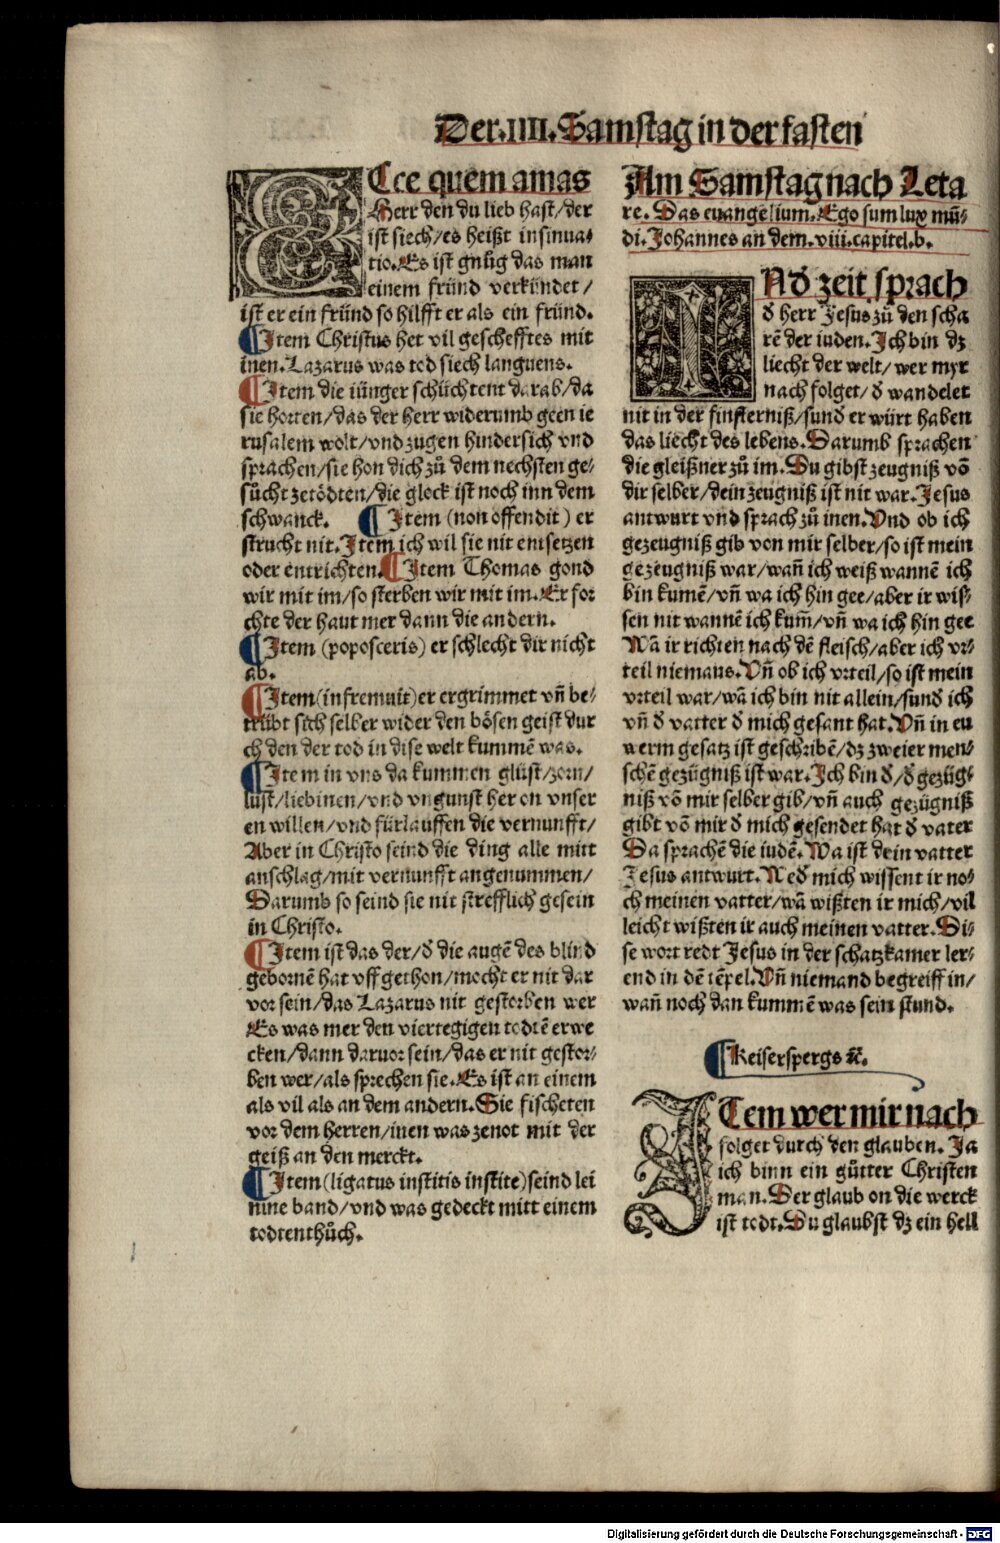 Der.IIII.Samstag in der fasten
ECce quem amas
Herr den du lieb hast/der
ist siech/es heißt insinua⸗
tio.Es ist gnůg das man
einem fründ verkündet/
ist er ein fründ so hilfft er als ein fründ.
¶Item Christus het vil geschefftes mit
inen.Lazarus was tod siech languens.
¶Item die iünger schüchtent darab/da
sie horten/das der herr widerumb geen ie
rusalem wolt/vnd zugen hindersich vnd
sprachen/sie hon dich zů dem nechsten ge⸗
sůcht zetödten/die glock ist noch inn dem
schwanck. ¶Item (non offendit) er
strucht nit.Item ich wil sie nit entsetzen
oder entrichten.¶Item Thomas gond
wir mit im/so sterben wir mit im.Er for
chte der haut mer dann die andern.
¶Item (poposceris) er schlecht dir nicht
ab.
¶Item(infremuit)er ergrimmet vñ be⸗
trůbt sich selber wider den bösen geist dur
ch den der tod in dise welt kummē was.
¶Item in vns da kummen glüst/zorn/
lust/liebinen/vnd vngunst her on vnser
en willen/vnd fürlauffen die vernunfft/
Aber in Christo seind die ding alle mitt
anschlag/mit vernunfft angenummen/
Darumb so seind sie nit strefflich gesein
in Christo.
¶Item ist das der/d̄ die augē des blind
gebornē hat vff gethon/mocht er nit dar
vor sein/das Lazarus nit gestorben wer
Es was mer den viertegigen todtē erwe
cken/dann daruor sein/das er nit gestor⸗
ben wer/als sprechen sie.Es ist an einem
als vil als an dem andern.Sie fischeten
vor dem herren/inen was zenot mit der
geiß an den merckt.
¶Item(ligatus institis instite)seind lei
nine band/vnd was gedeckt mitt einem
todtenthůch.
Am Samstag nach Leta
re.Das euangelium.Ego sum lux mū⸗
di.Johannes an dem.viii.capitel.b.
IN d̄ zeit sprach
d̄ herr Jesus zů den scha
rē der iuden.Ich bin dz
liecht der welt/wer myr
nach folget/d̄ wandelet
nit in der finsterniß/sund̄ er würt haben
das liecht des lebens.Darumb sprachen
die gleißner zů im.Du gibst zeugniß vō
dir selber/dein zeugniß ist nit war.Jesus
antwurt vnd sprach zů inen.Vnd ob ich
gezeugniß gib von mir selber/so ist mein
gezeugniß war/wañ ich weiß wannē ich
bin kumē/vñ wa ich hin gee/aber ir wis⸗
sen nit wannē ich kum̄/vñ wa ich hin gee
Wā ir richten nach dē fleisch/aber ich vr⸗
teil niemans.Vñ ob ich vrteil/so ist mein
vrteil war/wā ich bin nit allein/sund̄ ich
vñ d̄ vatter d̄ mich gesant hat.Vñ in eu
werm gesatz ist geschribē/dz zweier men⸗
schē gezügniß ist war.Ich bin d̄/d̄ gezüg⸗
niß vō mir selber gib/vñ auch gezügniß
gibt vō mir d̄ mich gesendet hat d̄ vater
Da sprachē die iudē.Wa ist dein vatter
Jesus antwurt.Ned̄ mich wissent ir no⸗
ch meinen vatter/wā wißten ir mich/vil
leicht wißten ir auch meinen vatter.Di⸗
se wort redt Jesus in der schatzkamer ler⸗
end in dē tēpel.Vñ niemand begreiff in/
wañ noch dan kummē was sein stund.
¶Keiserspergs ⁊c.
ITem wer mir nach
folget durch den glauben.Ja
ich binn ein gůtter Christen
man.Der glaub on die werck
ist todt.Du glaubst dz ein hell
Digitalisierung gefördert durch die Deutsche Forschungsgemeinschaft - DFG